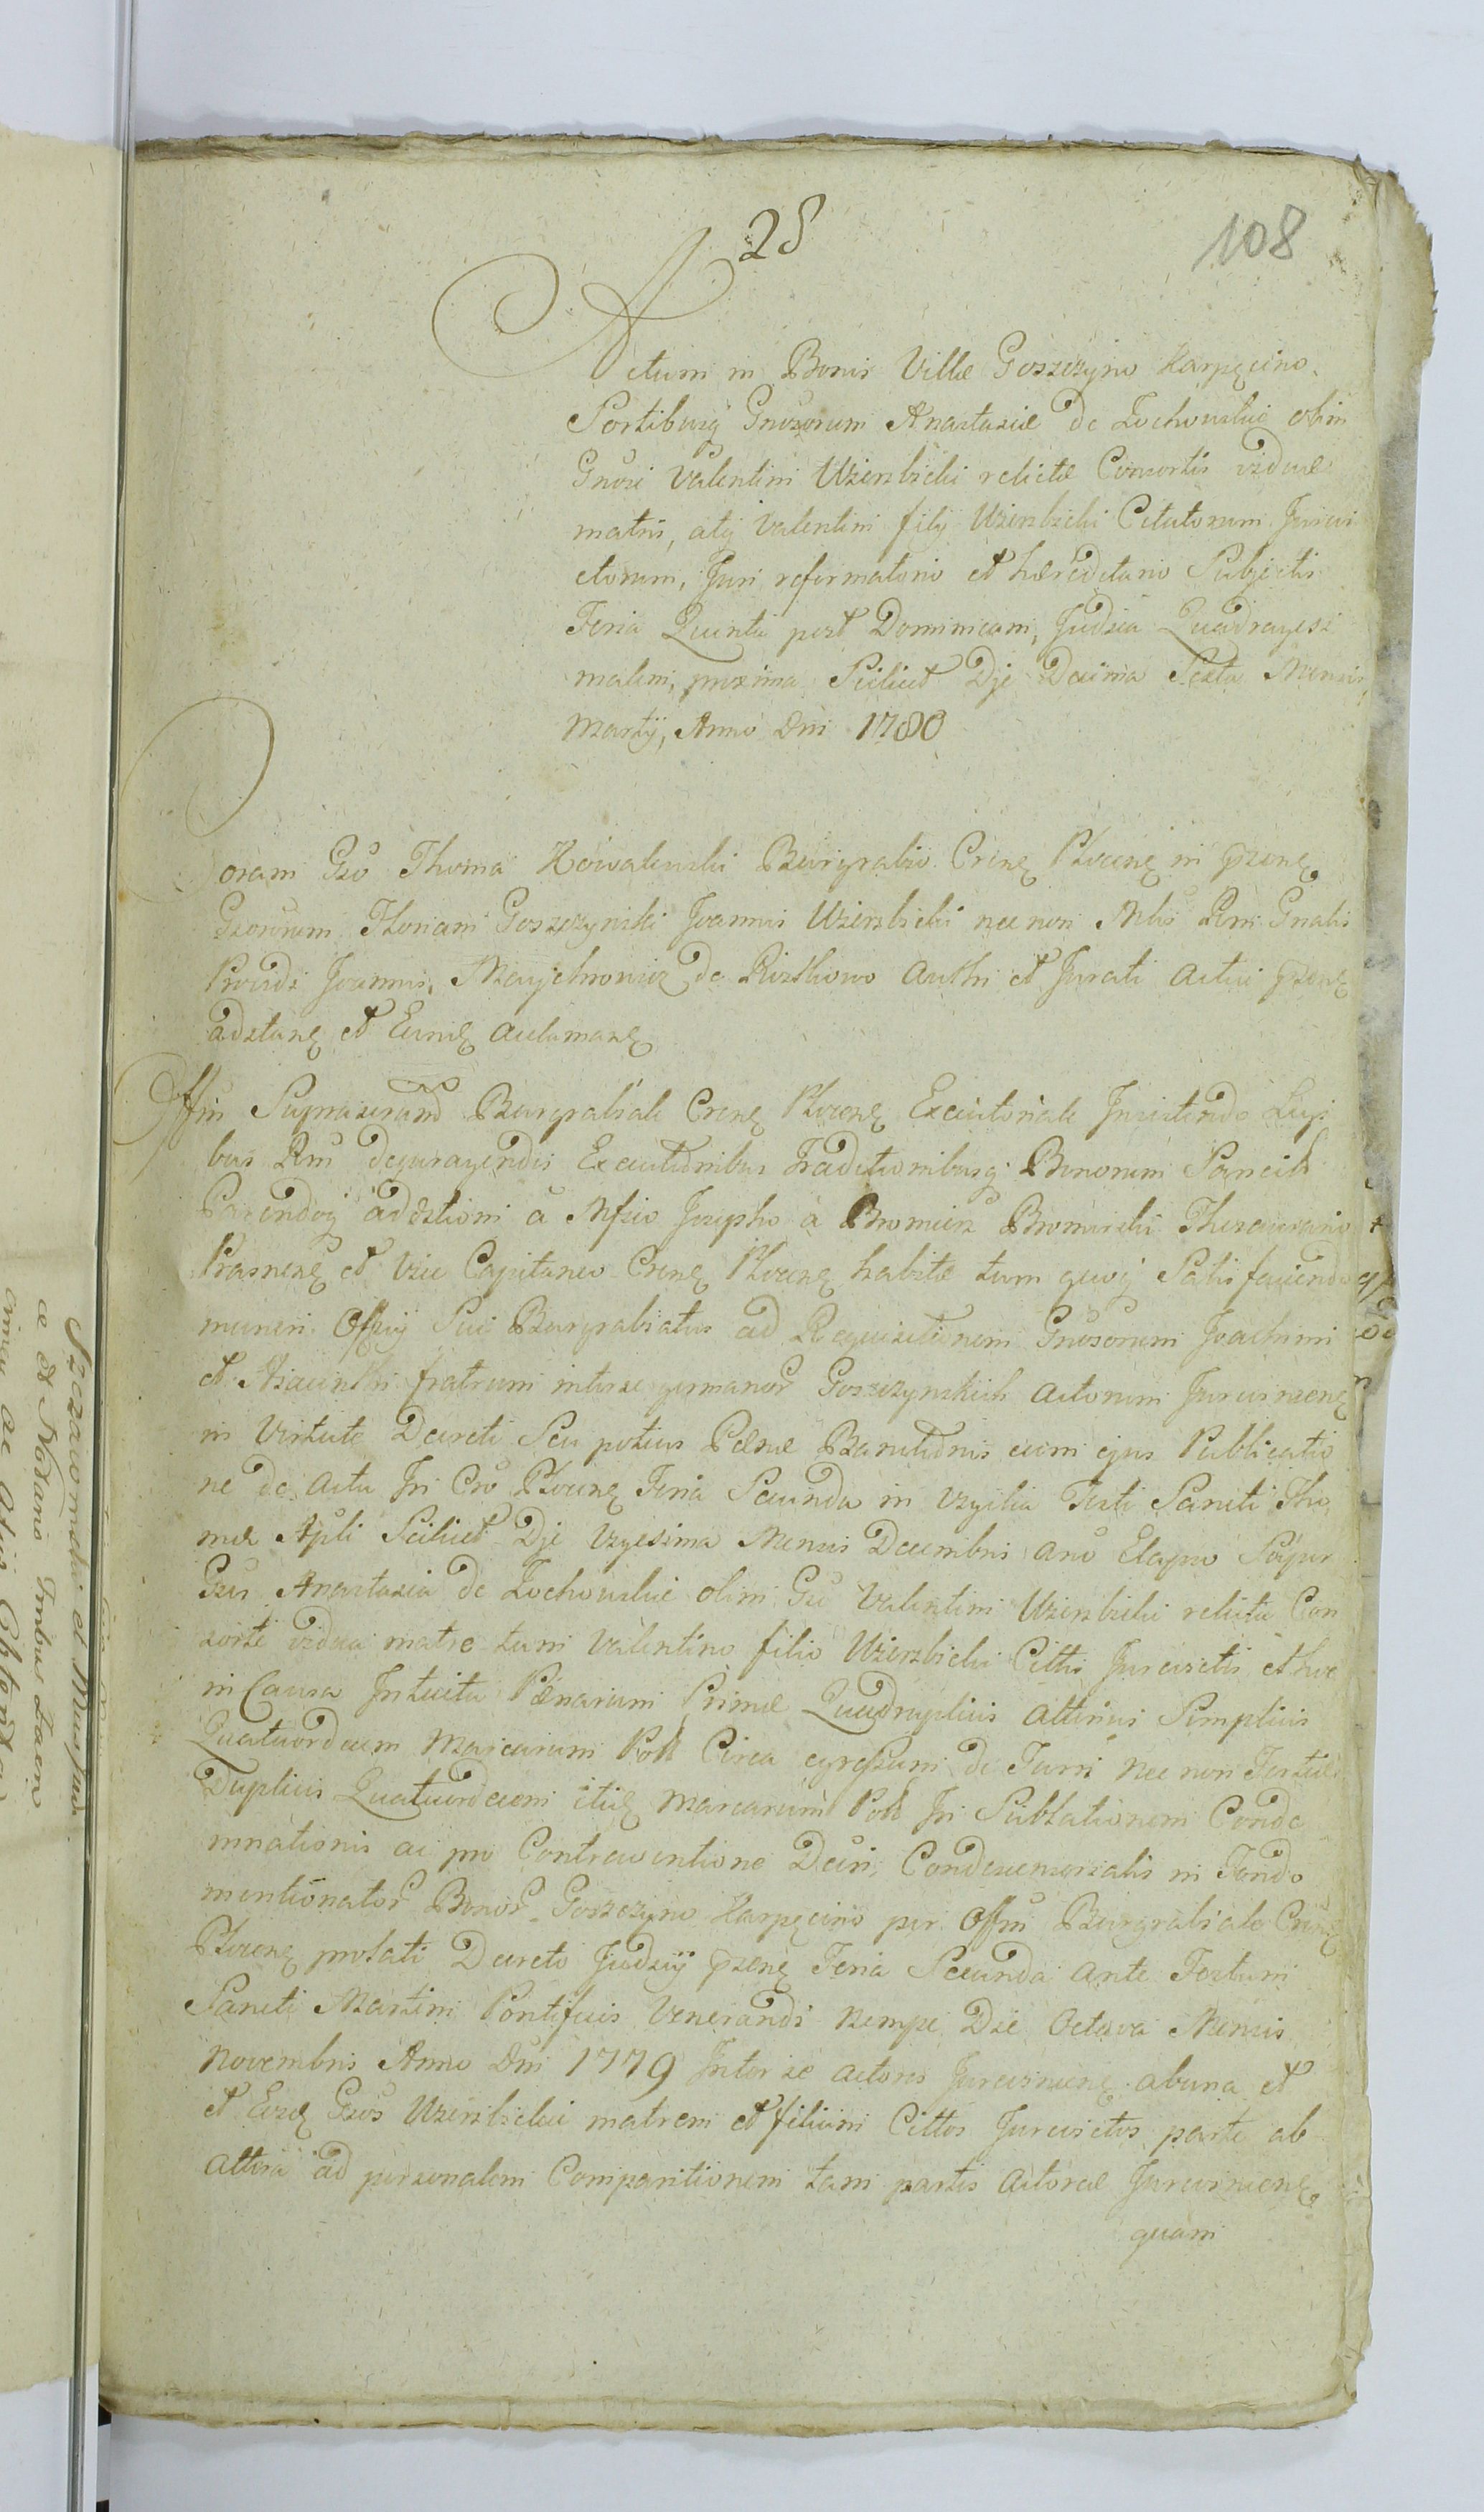 28
108
Actum in Bonis Villæ Goszczyno Karpęcino.
Sortibusq Gnosorum Anastasiæ de Zochowskie olim
Gnosi Valentini Wierzbicki relictæ Consortis viduæ
matris, atq Valentini filij Wierzbicki Citatorum Jurevi
ctorum, Juri reformatorio et hæreditario Subjectis
Feria Quinta post Dominicam, Judica Quadragesi
malem, proxima Scilicet Dje Decima Sexta Mensis
Martij, Anno Dni 1780
Coram Gso Thoma Kowalewski Burgrabio Crenę Plocenę in przenę
Gsorum Floriani Goszczynski Joannis Wierzbicki nec non Mlis Rni Gnalis
Providi Joannis, Maychrowicz de Rostkowo Authi et Jurati actui przenę
adstanę et Eumdę aclamanę
Offm Supraserand Burgrabiale Crenę Plocenę Executoriale Insistendo Legi
bus Rni deperagendis Executionibus Traditionibusq Bonorum Sancitis
Parendoq ad Estioni a Mfico Josepho a Bromierz Bromirski Thesaurario
Prasnenę et Vice Capitaneo Crenę Plocenę habitæ tum quoq Satisfaciendo
muneri Officij Sui Burgrabiatus ad Requisitionem Gnosorum Joachimi
et Hiacinthi fratrum inter se germanor Goszczynskich actorum Jurevincenę
in Virtute Decreti Seu potius Pœnæ Bannitionis cum ejus Publicatio
ne de actu In Cro Plocenę Feria Secunda in Vigilia Festi Sancti Tho
mæ Apli Scilicet Dje Vigesima Mensis Decembris ano Elapso Super
Gsis Anastasia de Zochowskie olim Gsi Valentini Wierzbicki relicta Con
sorte vidua matre tum Valentino filio Wierzbicki Cittis Jurevictis et hoc
in Causa Intuitu Pœnarum Primæ Quadruplicis altterius Simplicis
Quatuordecim Marcarum Poll Circa egressum de Turri nec non Tertiæ
Duplicis Quatuordecem itidę Marcarum Poll In Sublationem Conde
mnationis ac pro Contraventione Decri, Condescensorialis in Fondo
mentionator Bonor Goszczyno Karpęcino per Offm Burgrabiale Crenę
Plocenę prolati Decreto Judicij przenę Feria Secunda ante Festum
Sancti Martini Pontificis Venerandi nempe Die Octava Mensis
Novembris Anno Dni 1779 Inter se actores Jurevincenę abuna et
et Eosdę Gsos Wierzbickie matrem et filium Cittos Jurevictos parte ab
alttera ad personalem Comparitionem tam partis actoreæ Jurevincenę
quam